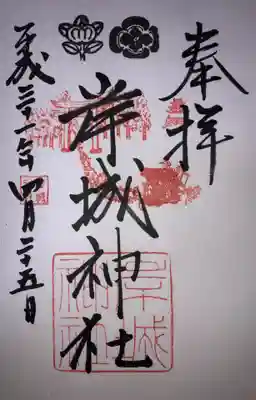 奉拝
岸城神社
平成三十一年四月二十五日
岸城神社